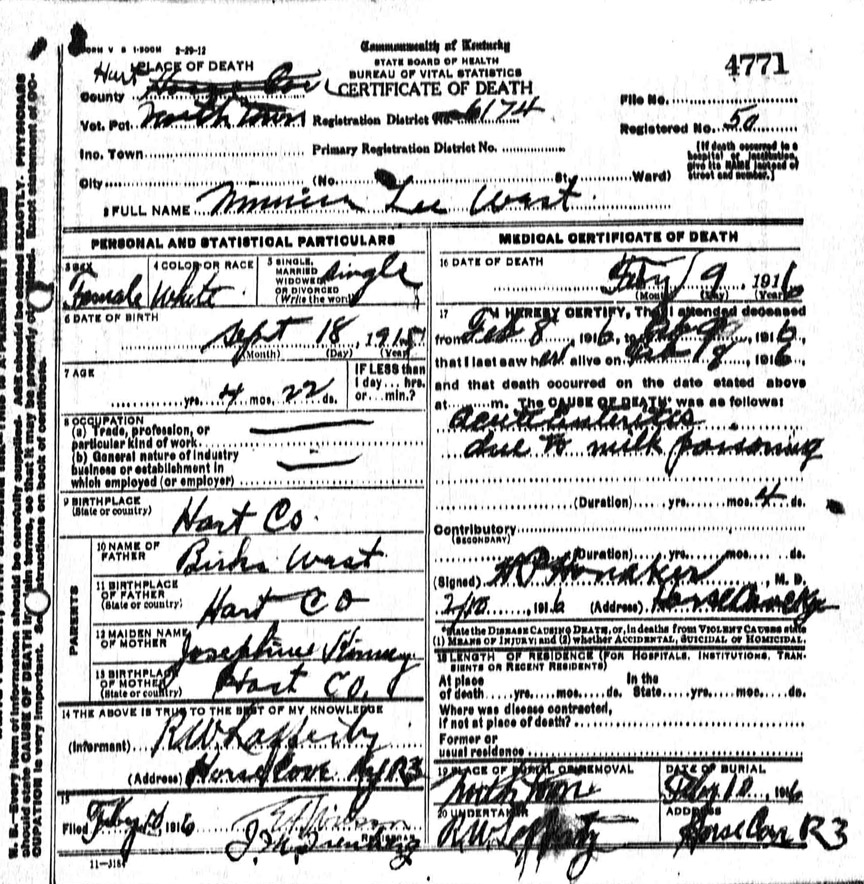 FORM V S 1-500M 2-29-12
Commonwealth of Kentucky
STATE BOARD OF HEALTH
BUREAU OF VITAL STATISTICS
CERTIFICATE OF DEATH
4771
PLACE OF DEATH
Hart
County Horse Cave
Vot. Pct. North Town Registration District No. 6174
File No.
Registered No. 50
Inc. Town Primary Registration District No.
[If death occurred in a hospital or institution, give its NAME instead of street and number.]
City (No. St. Ward)
2 FULL NAME Lee West
PERSONAL AND STATISTICAL PARTICULARS
3 SEX Female
4 COLOR OR RACE White
5 SINGLE, MARRIED WIDOWED OR DIVORCED (Write the word) Single
6 DATE OF BIRTH
Sept 18, 1915
(Month) (Day) (Year)
7 AGE
yrs. 4 mos. 22 ds.
IF LESS than 1 day... hrs. or... min.?
8 OCCUPATION
(a) Trade, profession, or particular kind of work
(b) General nature of industry business or establishment in which employed (or employer)
9 BIRTHPLACE (State or country) Hart Co.
PARENTS
10 NAME OF FATHER West
11 BIRTHPLACE OF FATHER (State or country) Hart CO
12 MAIDEN NAME OF MOTHER Josephine
13 BIRTHPLACE OF MOTHER (State or country) Hart CO.
14 THE ABOVE IS TRUE TO THE BEST OF MY KNOWLEDGE
(Informant) R.W. Lafferty
(Address) Horse Cave Ky R3
15
Filed Feby 10 1916
REGISTRAR
11-3184
MEDICAL CERTIFICATE OF DEATH
16 DATE OF DEATH
Feby 9, 1916
(Month) (Day) (Year)
17 I HEREBY CERTIFY, That I attended deceased
from Feb 8, 1916, to Feb 9, 1916
that I last saw her alive on Feb 8, 1916
and that death occurred on the date stated above
at m. The CAUSE OF DEATH* was as follows:
Acute Enteritis
due to milk poisoning
(Duration) yrs. mos. 4 ds.
Contributory (SECONDARY)
(Duration) yrs. mos. ds.
(Signed) Honaker, M. D.
2/10, 1916 (Address) Horse Cave Ky
*State the DISEASE CAUSING DEATH, or, in deaths from VIOLENT CAUSES state
(1) MEANS OF INJURY; and (2) whether ACCIDENTAL, SUICIDAL OR HOMICIDAL.
18 LENGTH OF RESIDENCE (FOR HOSPITALS, INSTITUTIONS, TRANSIENTS OR RECENT RESIDENTS)
At place of death yrs. mos. ds. In the State yrs. mos. ds.
Where was disease contracted, if not at place of death?
Former or usual residence
19 PLACE OF BURIAL OR REMOVAL North Town
DATE OF BURIAL Feby 10, 1916
20 UNDERTAKER R.W. Lafferty
ADDRESS Horse Cave R3
N. B.—Every item of information should be carefully supplied. AGE should be stated EXACTLY. PHYSICIANS
should state CAUSE OF DEATH in plain terms, so that it may be properly classified. Exact statement of OCCUPATION is very important. See instructions on back of certificate.